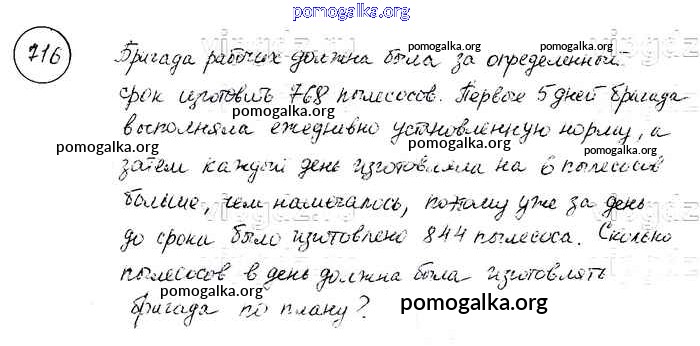 pomogalka.org
716
Бригада рабочих должна была за определенный
pomogalka.org
срок изготовить 768 пылесосов. Первые 5 дней бригада
pomogalka.org
выполняла ежедневно установленную норму, а
pomogalka.org
затем каждый день изготовляла на 6 пылесосов
pomogalka.org
больше, чем намечалось, потому уже за день
pomogalka.org
до срока было изготовлено 844 пылесоса. Сколько
pomogalka.org
пылесосов в день должна была изготовлять
pomogalka.org
бригада по плану?
pomogalka.org